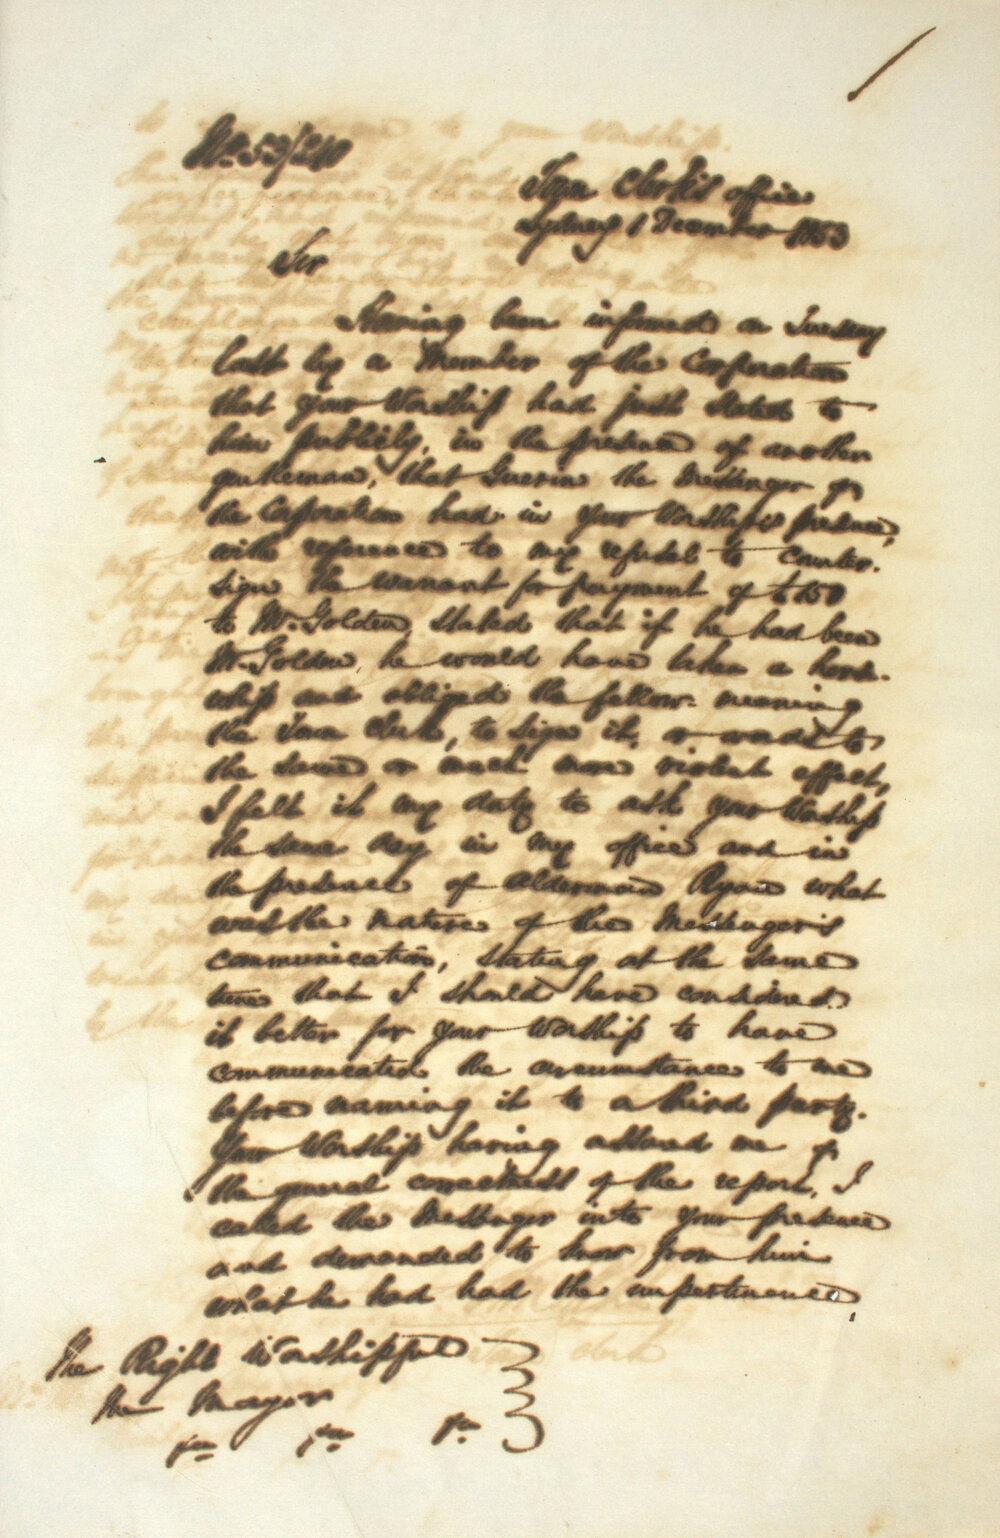 No. 53/240
Town Clerk's office
Sydney 1 December 1853
Sir
Having been informed on Tuesday
last by a Member of the Corporation
that your Worship had just stated to
him publicly, in the presence of another
gentleman, that Guerin the Messenger of
the Corporation had in your Worship's presence,
with reference to my refusal to counter-
sign the warrant for payment of £150
to Mr. Golden, stated that if he had been
Mr. Golden, he would have taken a horse-
whip and obliged the fellow meaning
the Town Clerk, to sign it, or words to
the same or much more violent effect,
I felt it my duty to ask your Worship
the same day in my office and in
the presence of Alderman Ryan what
was the nature of the Messenger's
communication, stating at the same
time that I should have considered
it better for your Worship to have
communicated the circumstance to me
before naming it to a third party.
Your Worship having assured me of
the general correctness of the report, I
called the Messenger into your presence
and demanded to know from him
what he had had the impertinence
The Right Worshipful
the Mayor